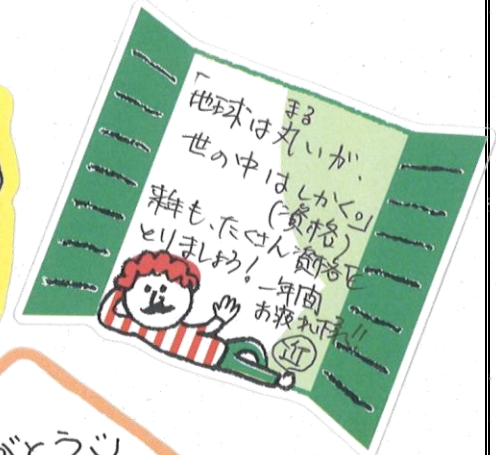 「地球は丸いが、
まる
世の中はしかく。」
(資格)
来年も、たくさん資格を
とりましょう！一年間
お疲れ様!!
近
がとうジ